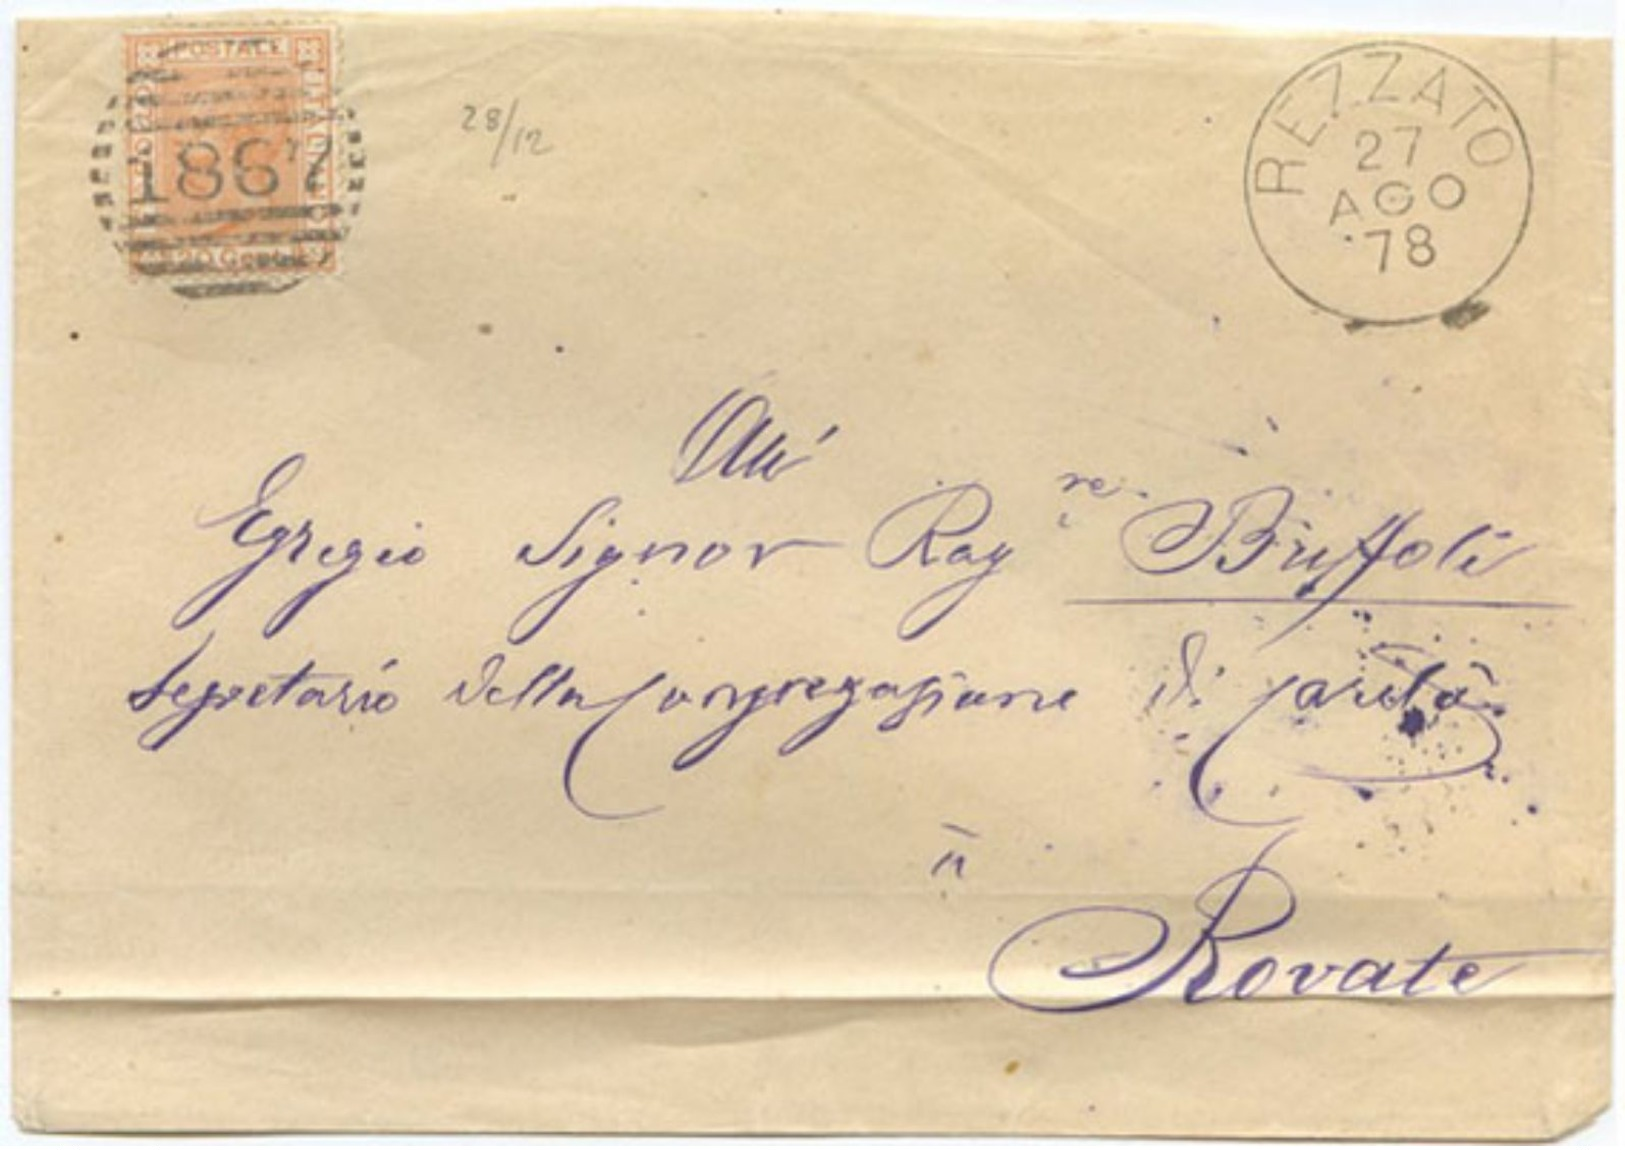 POSTALE
1867
20 C
28/12
REZZATO
27
AGO
78
All'
Egregio Signor Rag.re Buffoli
Segretario della Congregazione di Carità
in
Rovate